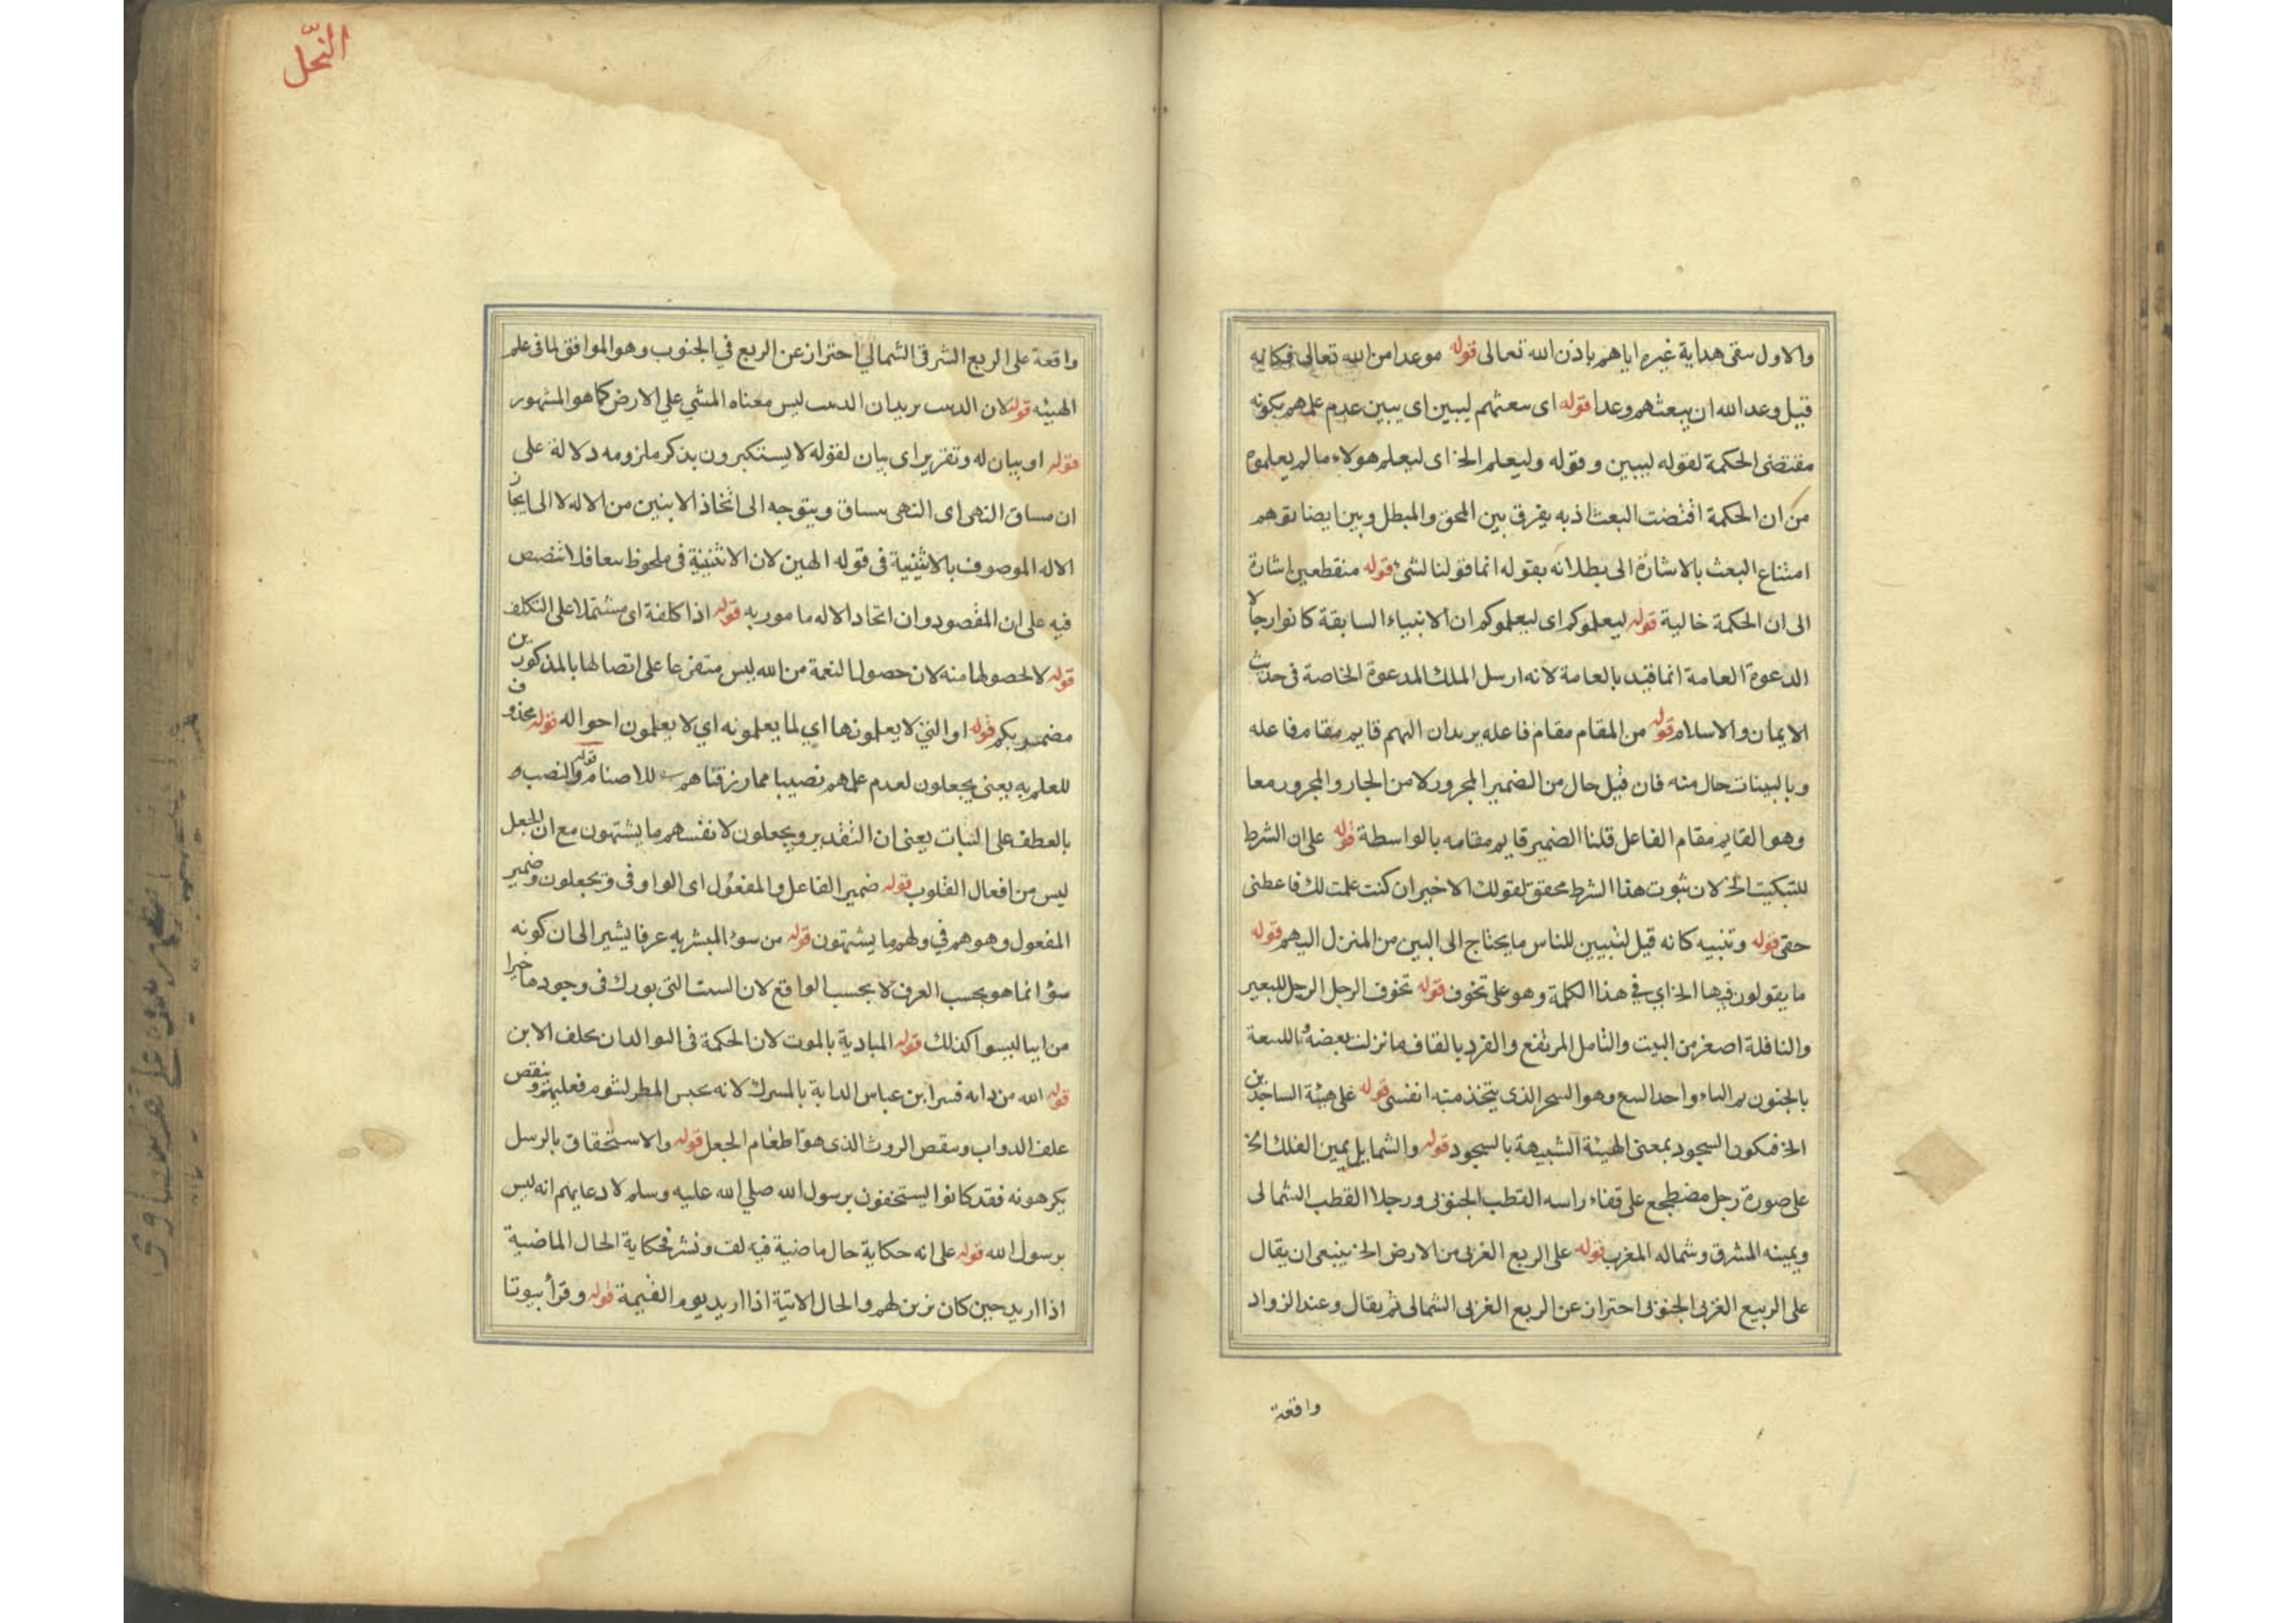 والاول ينفى هداية غيره اياهم باذن الله تعالى قوله موعدا من الله تعالى فكانه
قيل وعد الله ان يبعثهم وعدا قوله اى يبعثهم ليبين اى يبين عدم علمهم بكونه
مقتضى الحكمة لقوله ليبين وقوله وليعلم الخ اى ليعلم هولاء ما لم يعلموه
من ان الحكمة اقتضت البعث اذ به يفرق بين المحق والمبطل وبين ايضا توهم
امتناع البعث بالاشارة الى بطلانه بقوله انما قولنا لشئ قوله منقطعين اشارة
الى ان الحكمة خالية قوله ليعلموكم اى ليعلموكم ان الانبياء السابقة كانوا رجالا
الدعوة العامة انما قيد بالعامة لانه ارسل الملك للدعوة الخاصة فى حديث
الايمان والاسلام قوله من المقام مقام فاعله يريد ان اليهم قايم مقام فاعله
وبالبينات حال منه فان قيل حال من الضمير المجرور لا من الجار والمجرور معا
وهو القايم مقام الفاعل قلنا الضمير قايم مقامه بالواسطة قوله على ان الشرط
للتبكيت الخ لان ثبوت هذا الشرط محقق لقولك الاخير ان كنت علمت لك فاعطنى
حقى قوله وتنبيه كانه قيل لتبيين للناس ما يحتاج الى البين من المنزل اليهم قوله
ما يقولون فيها الخ اي في هذا الكلمة وهو على تخوف قوله تخوف الرجل الرحل للبعير
والنافلة اصغر من البيت والتامل المرتفع والقرد بالقاف ما نزلت بعضه
بالجنون واحد وهو الذى يتخذ منه قوله على هيئة الساجدين
الخ فيكون السجود بمعنى الهيئة الشبيهة بالسجود قوله والشمايل يمين الفلك الخ
على صورة رجل مضطجع على قفاء راسه القطب الجنوبى ورجلا القطب الشمالى
ويمينه المشرق وشماله المغرب قوله على الربع الغربى من الارض الخ ينبغى ان يقال
على الربيع الغربى الجنوبى احتراز عن الربع الغربى الشمالى ثم يقال وعند الزواد
واقعة
النّحل
واقعة على الربع الشرقى الشمالي احتراز عن الربع في الجنوب وهو الموافق لما فى علم
الهيئه قوله لان الدبيب يريد ان الدبيب ليس معناه المشي علي الارض كما هو المشهور
قوله او بيان له وتقرير اى بيان لقوله لا يستكبرون بذكر ملزومه دلالة على
ان مساق النهى اى النهى يساق ويتوجه الى اتخاذ الاثنين من الاله لا الى ايجاز
الاله الموصوف بالاثنينية فى قوله الهين لان الاثنينية فى ملحوظ
فيه على ان المقصود وان اتحاد الاله مامور به قوله اذا كلفة اى مشتملا على التكلف
قوله لا لحصولها منه لان حصول النعمة من الله ليس متفرعا على اتصالها بالمذكورين
مضمر بكم قوله او التى لا يعلمونها اي لما يعلمونه اي لا يعلمون احواله قوله محذوف
للعلم به يعنى يجعلون لعدم علمهم نصيبا مما رزقناهم للاصنام قوله والنصب و
بالعطف على البنات يعنى ان التقدير ويجعلون لانفسهم ما يشتهون مع ان الجعل
ليس من افعال القلوب قوله ضمير الفاعل والمفعول اى الواو فى ويجعلون وضمير
المفعول وهو هم في ولهم ما يشتهون قوله من سوء المبشر به عرفا يشير الى ان كونه
سوٴا انما هو بحسب العرف لا بحسب الواقع لان البنت التى بورك فى وجودها خيرا
من ليسوا كذلك قوله المبادية بالموت لان الحكمة فى التوالد ان يخلف الابن
قوله الله من دابه فسر ابن عباس الدابة بالمشرك لانه يحبس المطر لشوم فعليهم وينقص
علف الدواب وينقص الروث الذى هو اطعام الجعل قوله والاستحقاق بالرسل
يكرهونه فقد كانوا يستخفون برسول الله صلي الله عليه وسلم لادعايهم انه ليس
برسول الله قوله على انه حكاية حال ماضية فيه لف ونشر فحكاية الحال الماضية
اذا اريد حين كان يزين لهم والحال الاتية اذا اريد يوم القيمة قوله وقرأ بيوتا